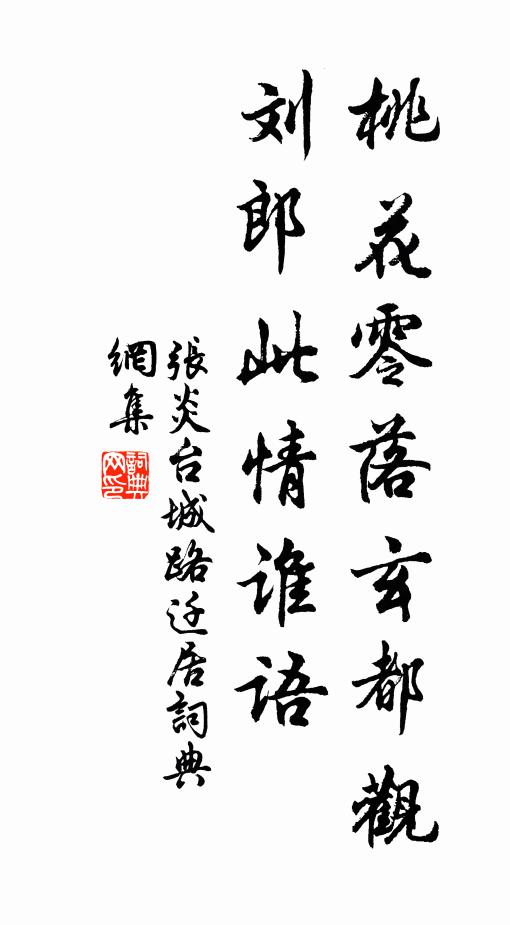 桃花零落玄都觀
刘郎此情谁语
張炎台城路迁居詞典
網集
詞典網印